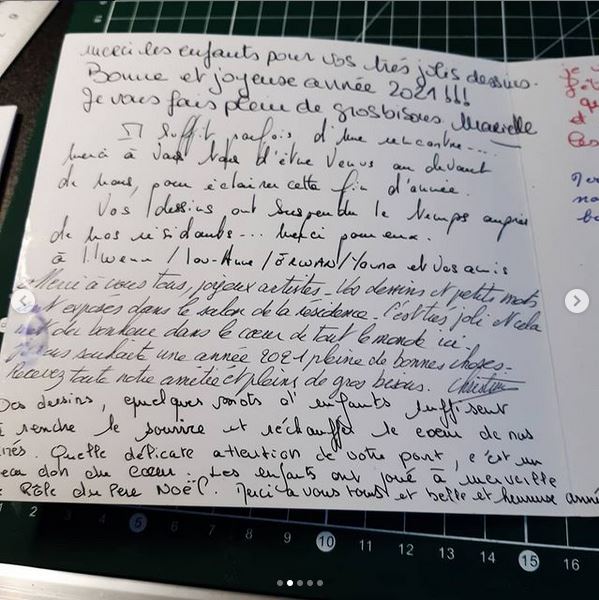 merci les enfants pour vos très jolis dessins.
Bonne et joyeuse année 2021 !!!
Je vous fais plein de gros bisous. Marielle
Il suffit parfois d'une rencontre...
merci à vous tous d'être venus au devant
de nous, pour éclairer cette fin d'année.
Vos dessins ont suspendu le temps auprès
de nos résidants... merci pour eux.
à / Lou-Anne / / Youna et vos amis
Merci à vous tous, joyeux artistes. Vos dessins et petits mots
sont exposés dans le salon de la résidence. C'est très joli et cela
met du bonheur dans le cœur de tout le monde ici.
Je vous souhaite une année 2021 pleine de bonnes choses.
Recevez toute notre amitié et pleins de gros bisous. Christine
Des dessins, quelques mots d'enfants suffisent
à rendre le sourire et réchauffer le cœur de nos
Quelle délicate attention de votre part, c'est un
don du cœur. Les enfants ont joué à merveille
le Rôle du Père Noël. Merci à vous tous et belle et heureuse année
je
et
1 2 3 4 5 6 7 8 9 10 11 12 13 14 15 16